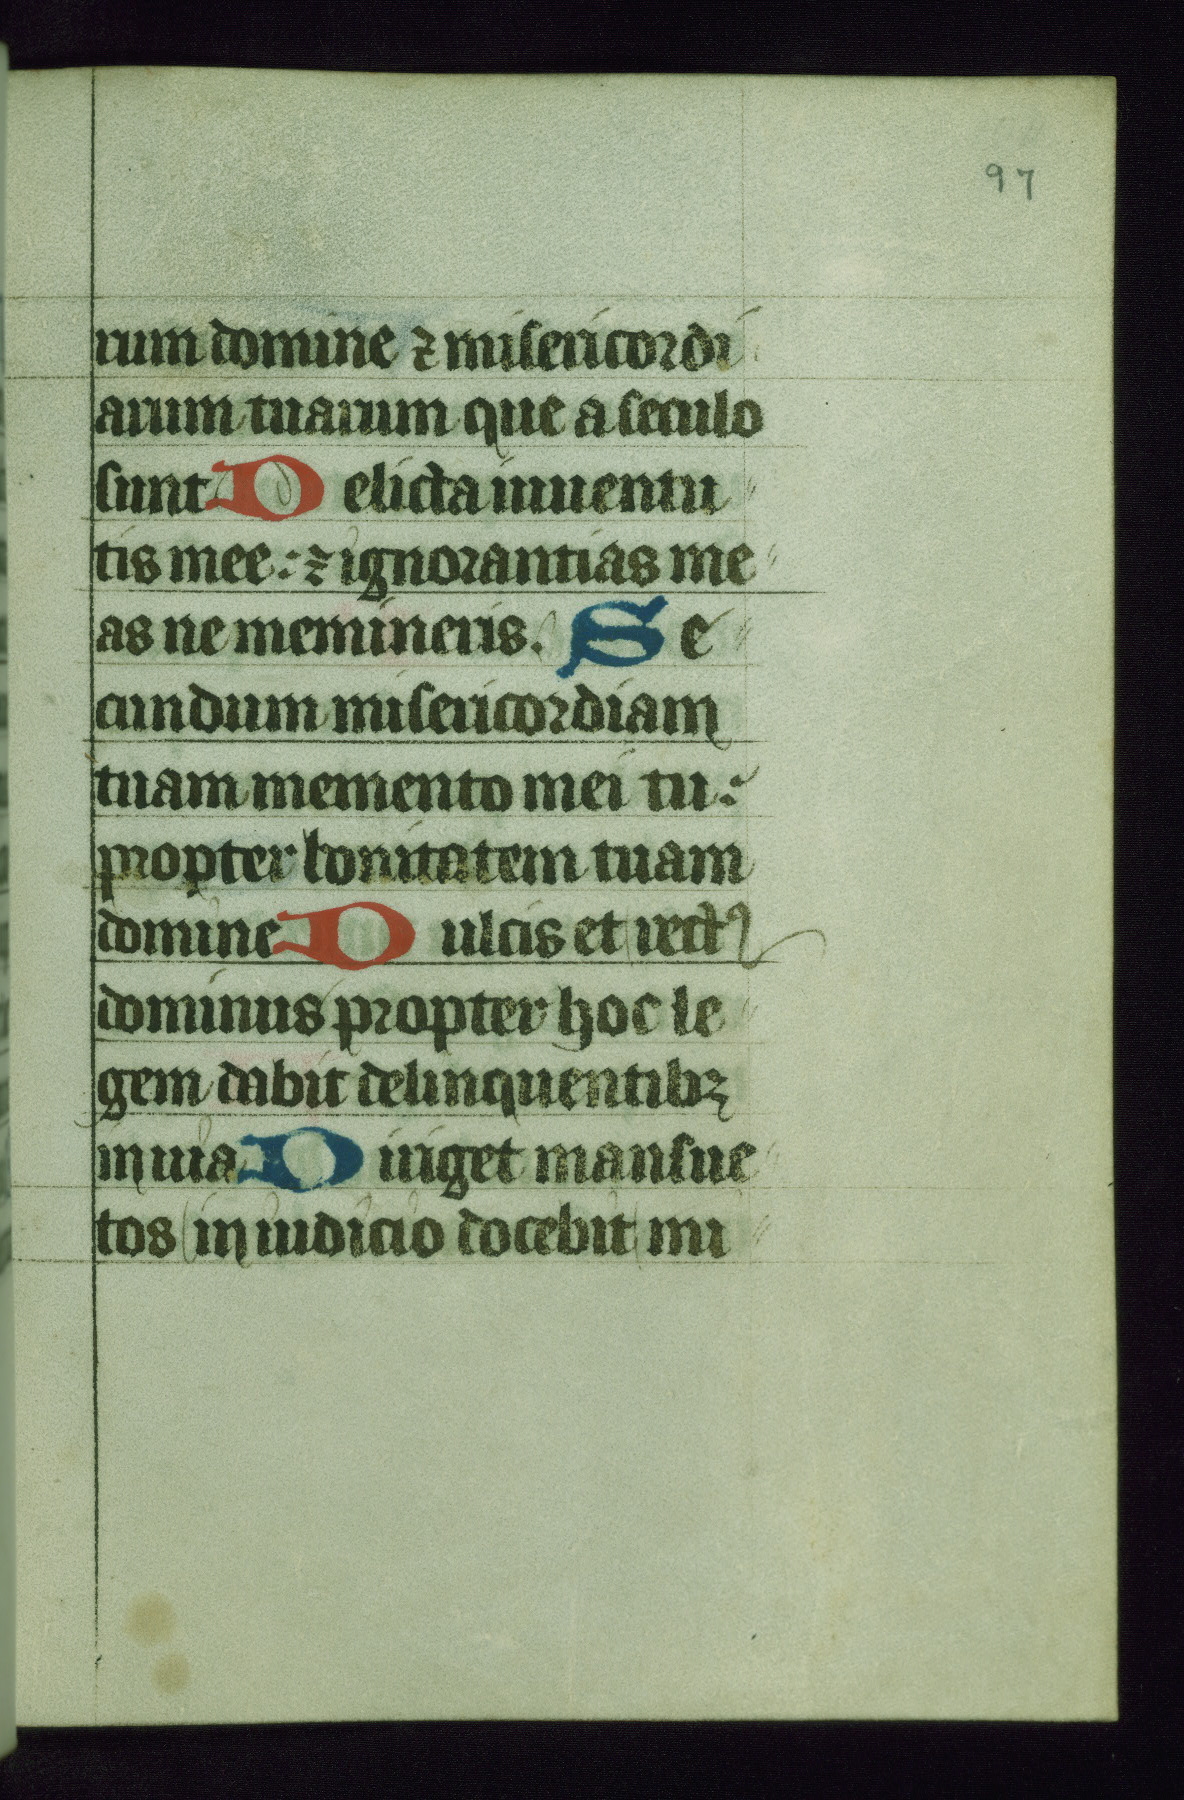 97
rum domine ⁊ misericordi
arum tuarum que a seculo
sunt Delicta iuuentu
tis mee: ⁊ ignorantias me
as ne memineris. Se
cundum misericordiam
tuam memento mei tu:
propter bonitatem tuam
domine Dulcis et rectꝰ
dominus propter hoc le
gem dabit delinquentibꝫ
in uia Diriget mansue
tos in iudicio docebit mi